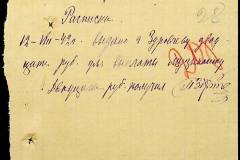 28
Расписка
12-VIII-42г. выдано т. Зуровскому двад-
цать руб. для выплаты
Двадцать руб. получил